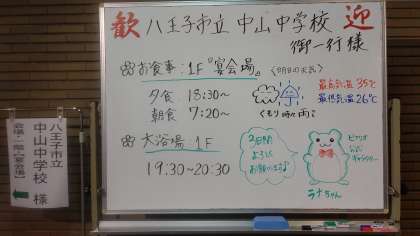 歓 八王子市立 中山中学校 迎
御一行様
お食事：1F『宴会場』
夕食 18:30～
朝食 7:20～
大浴場：1F
19:30～20:30
〈明日の天気〉
最高気温 35℃
最低気温 26℃
くもり 時々 雨
2日間
よろしく
お願いします♪
キャラクター
ラナちゃん
八王子市立
中山中学校 様
会場・一階『宴会場』